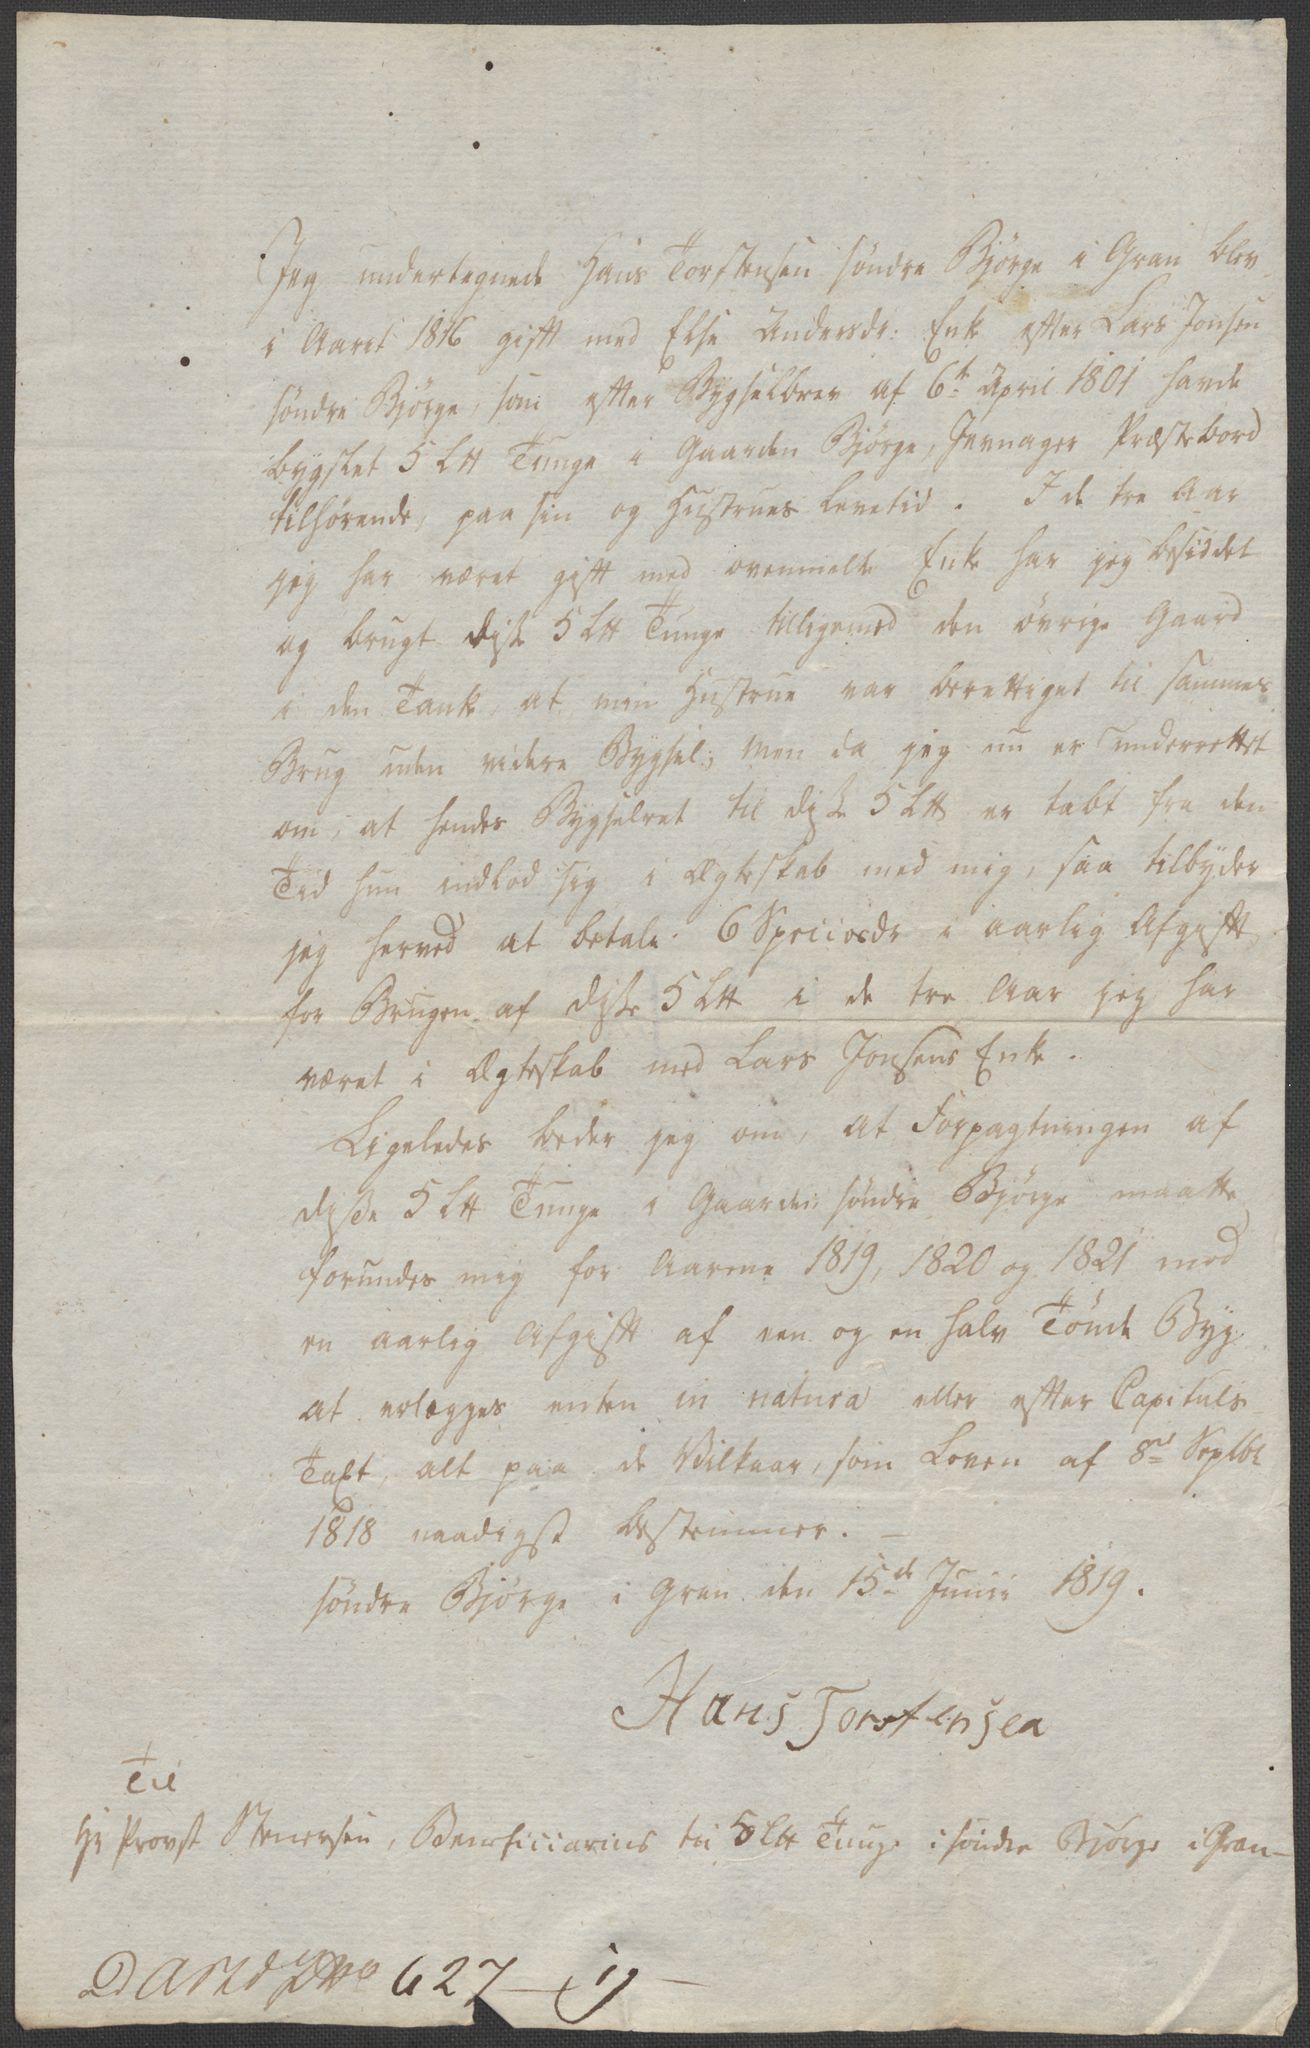 Jeg undertegnede Hans Torstensen søndre Bjørge i Gran blev
i Aaret 1816 gift med Else Andersdr: Enke efter Lars Jonsen
søndre Bjørge, som efter Bygselbrev af 6te April 1801 havde
bygslet 5 Ltt Tunge i Gaarden Bjørge, Jevnager Præstebord
tilhørende, paa sin og Hustrues Levetid. I de tre Aar
jeg har været gift med ovenmeldte Enke har jeg besiddet
og brugt disse 5 Ltt Tunge tilligemed den øvrige Gaard
i den Tanke, at min Hustrue var berettiget til sammes
Brug uden videre Bygsel; men da jeg nu er underrettet
om, at hendes Bygselret til disse 5 Ltt er tabt fra den
Tid hun indlod sig i Ægteskab med mig, saa tilbyder
jeg herved at betale 6 Speciesdr i aarlig Afgift
for Brugen af disse 5 Ltt i de tre Aar jeg har
været i Ægteskab med Lars Jonsens Enke.
Ligeledes beder jeg om, at Forpagtningen af
disse 5 Ltt Tunge i Gaarden søndre Bjørge maatte
forundes mig for Aarene 1819, 1820 og 1821 mod
en aarlig Afgift af een og en halv Tønde Byg
at erlægges enten in natura eller efter Capituls-
Taxt, alt paa de Vilkaar, som Loven af 8de Septbr
1818 naadigst bestemmer. —
søndre Bjørge i Gran den 15de Junii 1819.
Hans Torstensen
Til
Hr Provst Stenersen, Beneficiarius til 5 Ltt Tunge i søndre Bjørge i Gran—
627